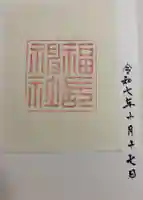 令和七年十月十七日
福長
神社